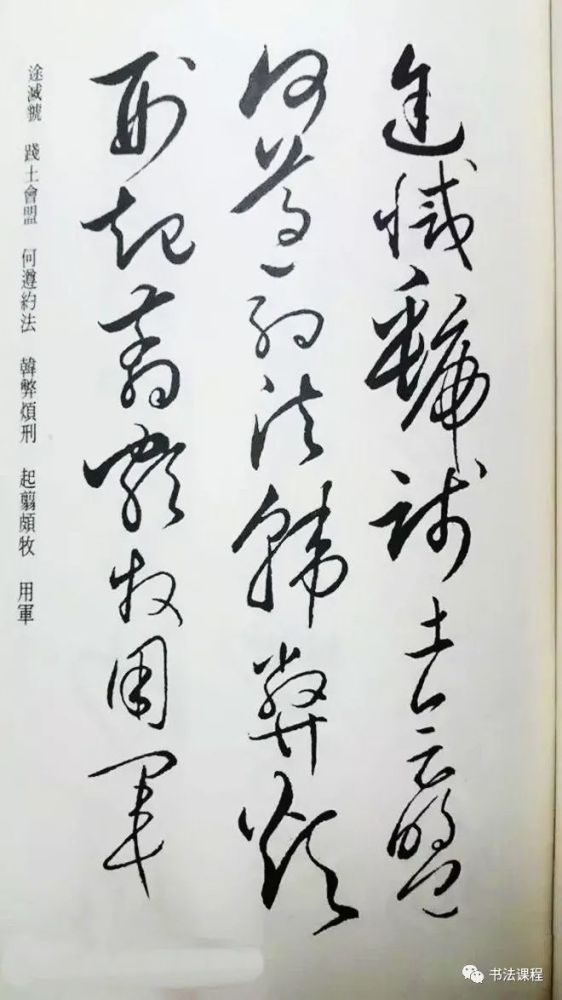 途滅虢踐土會盟
何遵約法韓弊煩
刑起翦頗牧用軍
途滅虢 踐土會盟 何遵約法 韓弊煩刑 起翦頗牧 用軍
书法课程